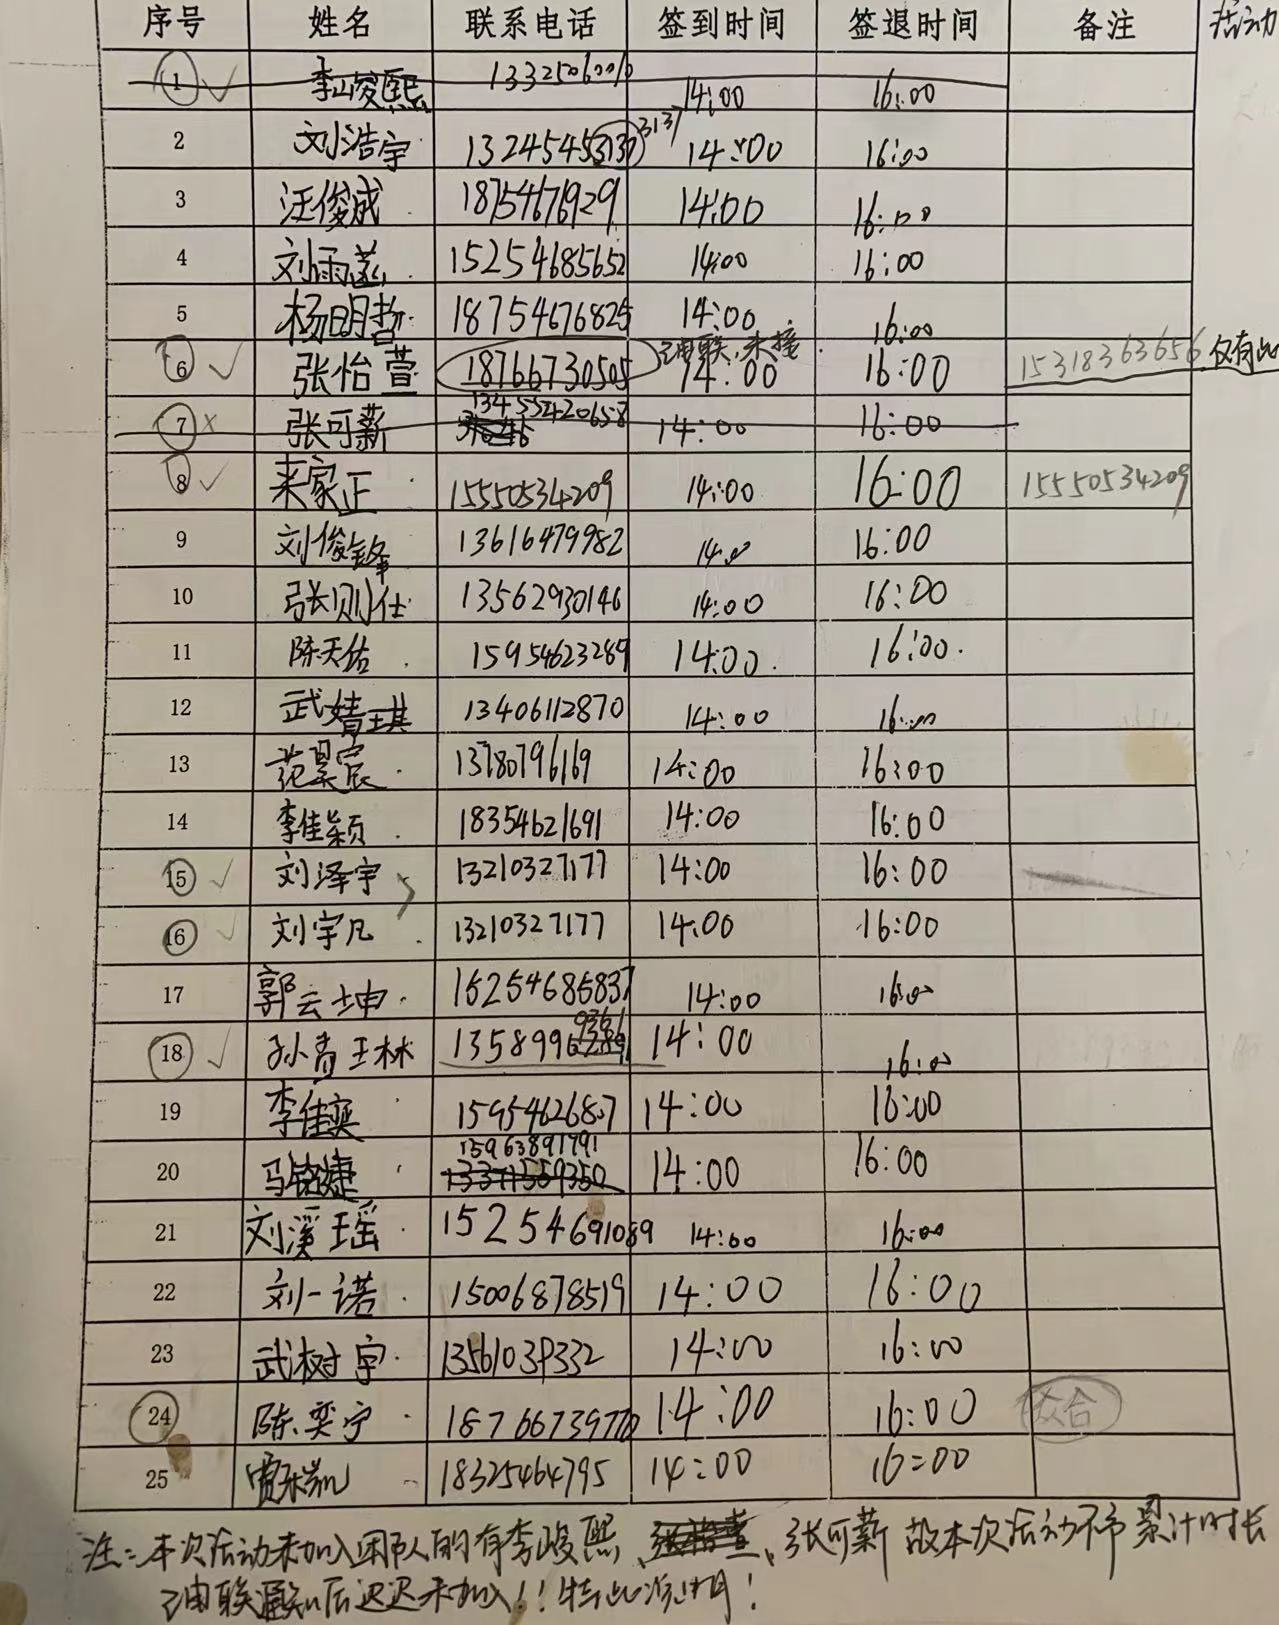 序号 姓名 联系电话 签到时间 签退时间 备注 活动
1 李峻熙 14:00 16:00
2 刘浩宇 13245453137 3137 14:00 16:00
3 汪俊成 18754676929 14:00 16:00
4 刘雨菡 15254685652 14:00 16:00
5 杨明哲 18754676825 14:00 16:00
6 张怡萱 18766730505 电联,未接 14:00 16:00 15318363656 仅有此
7 张可薪 13455420658 14:00 16:00
8 来家正 15550534209 14:00 16:00 15550534209
9 刘俊锋 13616479982 14:00 16:00
10 张则仕 13562930146 14:00 16:00
11 陈天佑 15954623289 14:00 16:00
12 武婧琪 13406112870 14:00 16:00
13 范昊宸 13780796169 14:00 16:00
14 李佳颖 18354621691 14:00 16:00
15 刘泽宇 13210327177 14:00 16:00
16 刘宇凡 13210327177 14:00 16:00
17 郭云坤 15254685837 14:00 16:00
18 孙青王林 14:00 16:00
19 李佳奕 15954626807 14:00 16:00
20 马铭婕 15963891791 13371559350 14:00 16:00
21 刘溪瑶 15254691089 14:00 16:00
22 刘一诺 15006878519 14:00 16:00
23 武树宇 14:00 16:00
24 陈奕宁 18766739770 14:00 16:00
25 18325464795 14:00 16:00
注:本次活动未加入团队的有李峻熙、张怡萱、张可薪 故本次活动不予累计时长
电联通知后迟迟未加入!!特此说明!